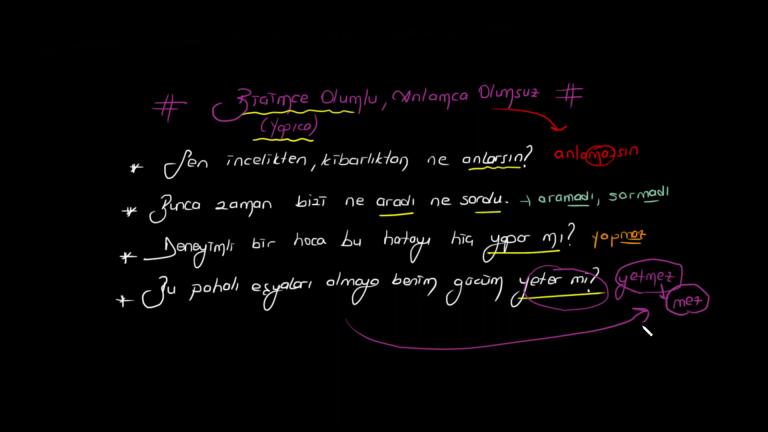 # Biçimce Olumlu, Anlamca Olumsuz #
(Yapıca)
* Sen incelikten, kibarlıktan ne anlarsın? anlamazsın
* Bunca zaman bizi ne aradı ne sordu. → aramadı, sormadı
* Deneyimli bir hoca bu hatayı hiç yapar mı? yapmaz
* Bu pahalı eşyaları almaya benim gücüm yeter mi? yetmez
mez